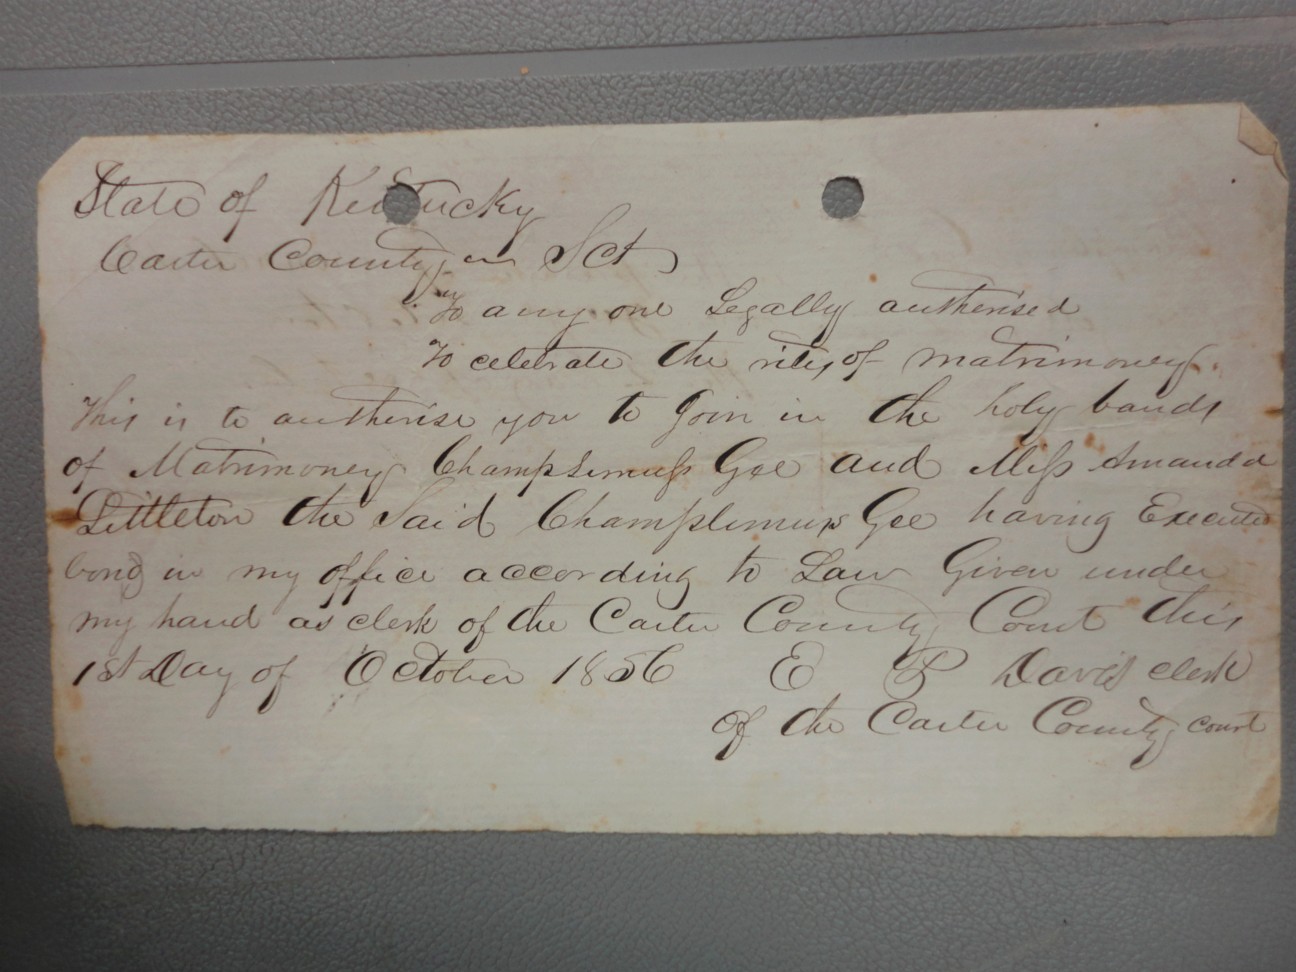 State of Kentucky
Carter County Sct
To any one Legally autherised
To celebrate the rites of matrimoney.
This is to autherise you to Join in the holy bands
of Matrimoney Champlimuss Gee and Miss Amanda
Littleton the Said Champlimus Gee having Executed
bond in my office according to Law Given under
my hand as clerk of the Carter County Court this
1st Day of October 1856 E P Davis clerk
of the Carter County court